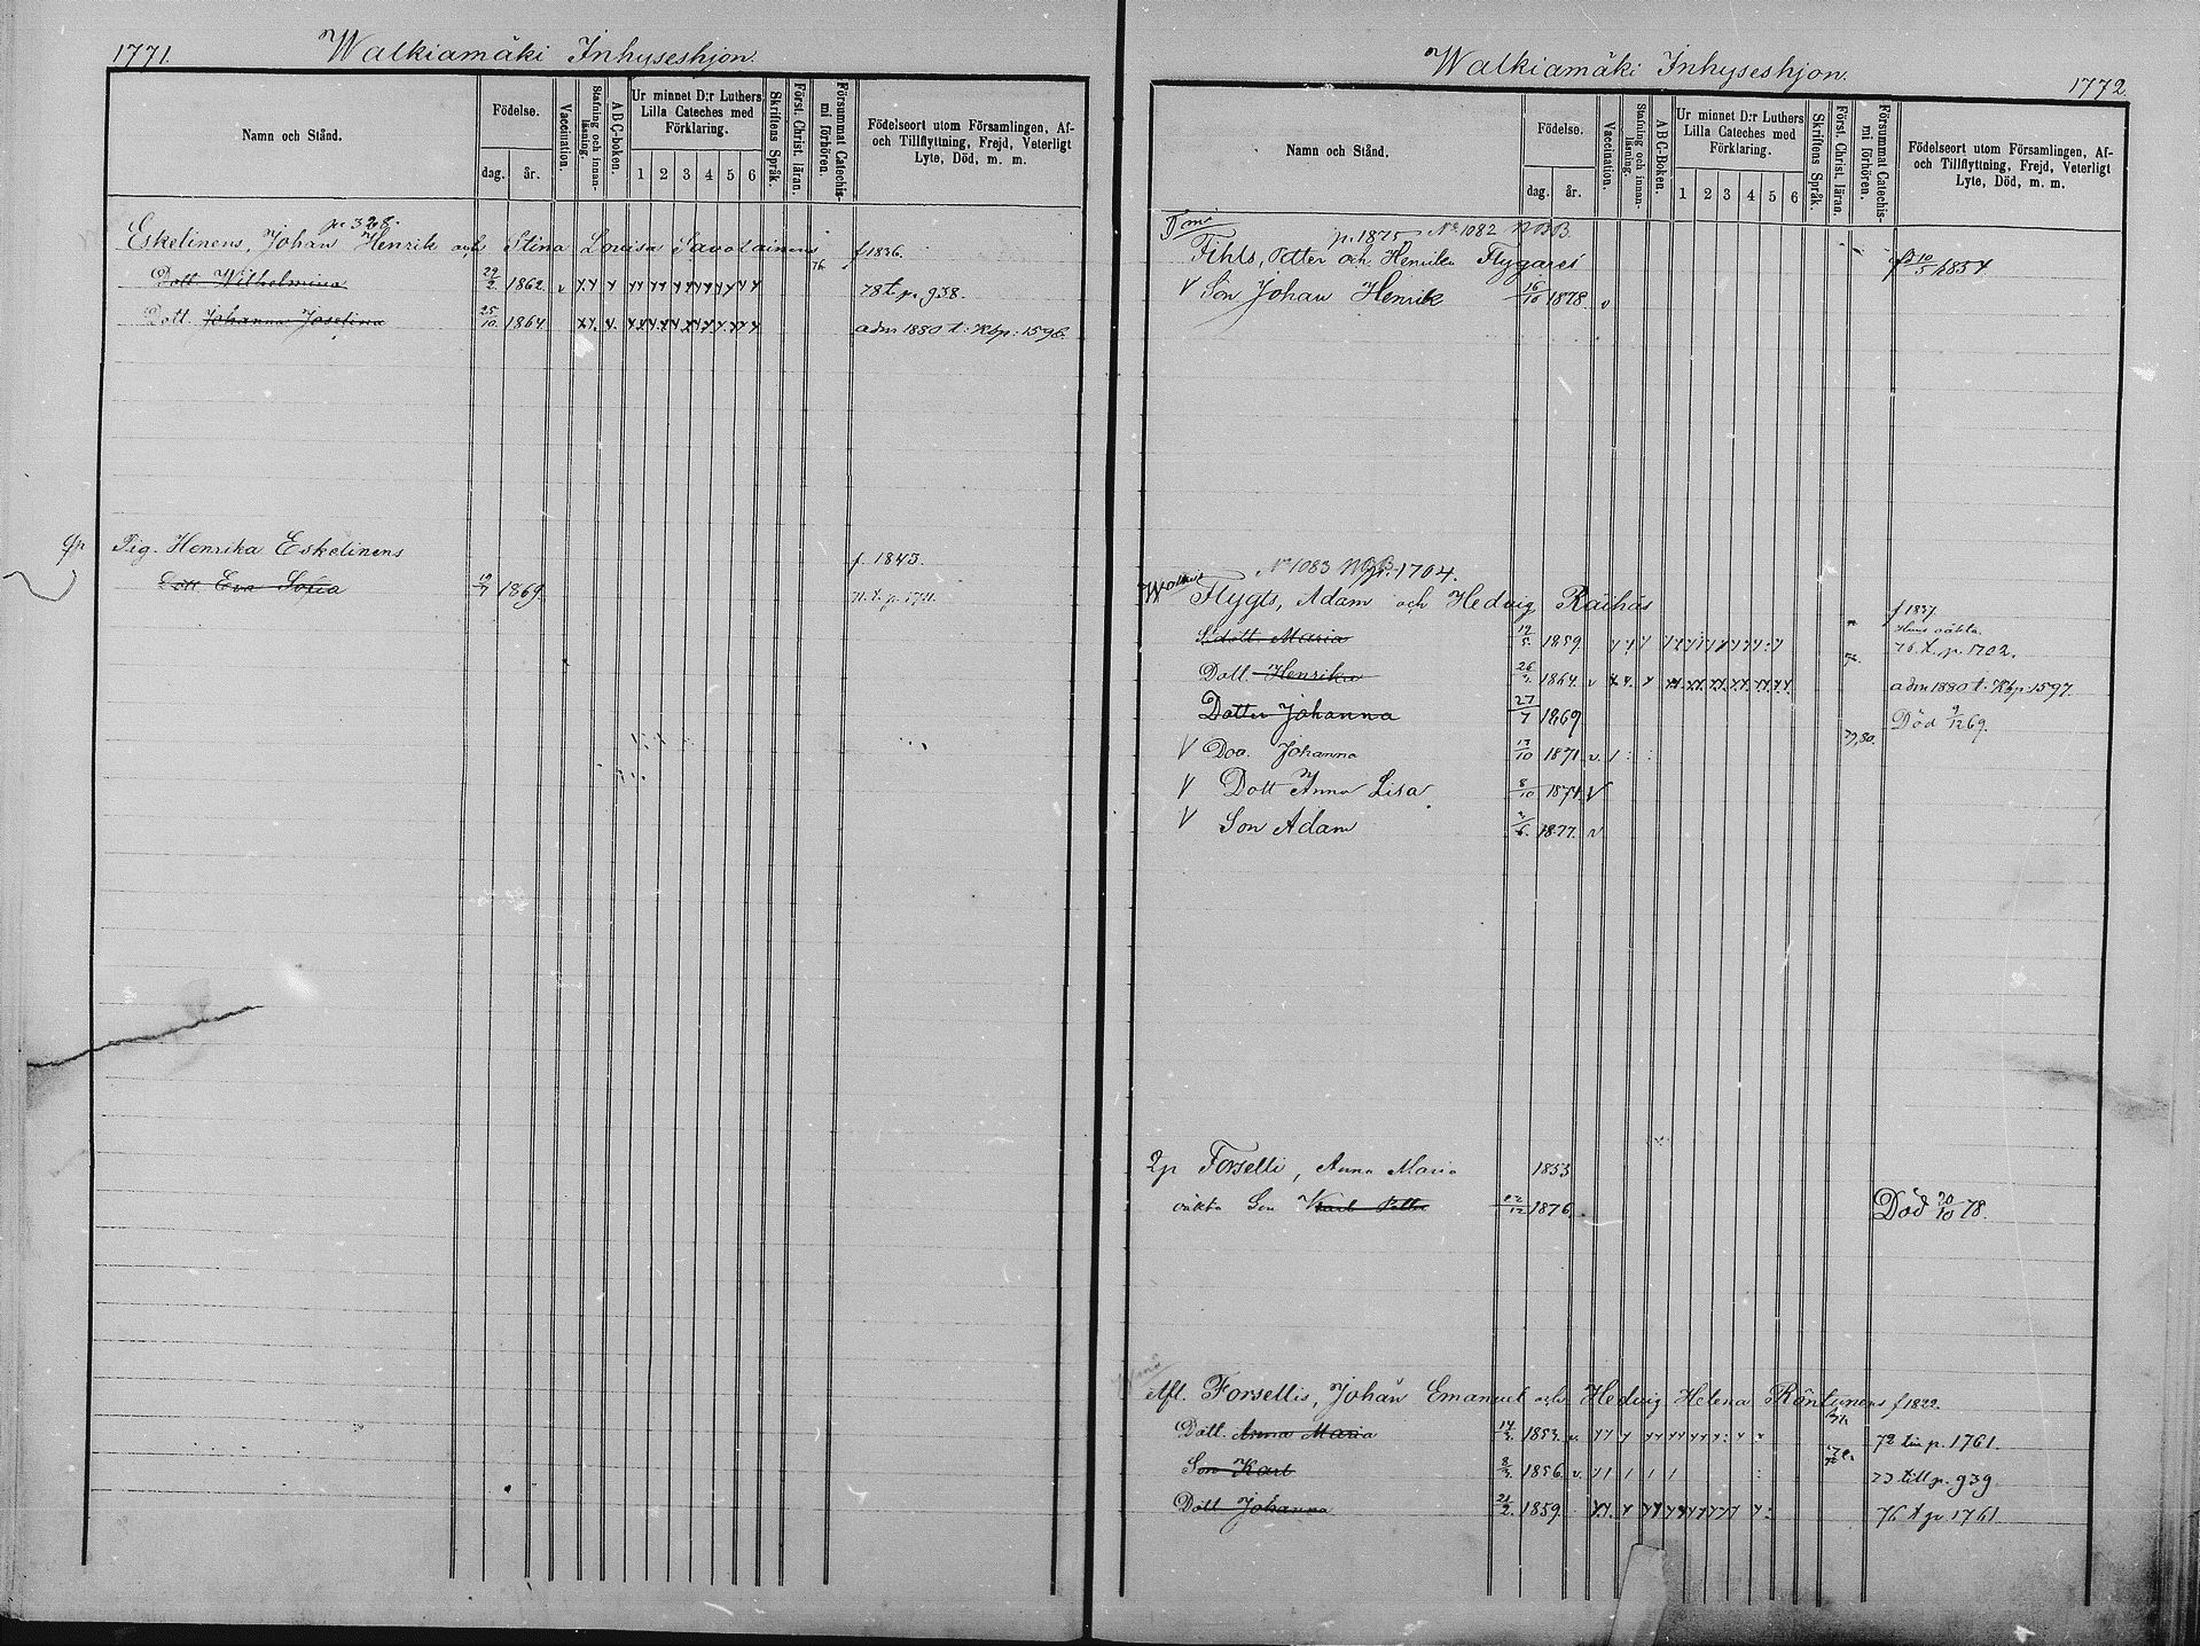 1771. Walkiamäki Inhyseshjon.
Namn och Stånd.
Födelse.
dag. år.
Vaccination.
Stafning och innanläsning.
ABC-boken.
Ur minnet D:r Luthers Lilla Cateches med Förklaring.
1 2 3 4 5 6
Skriftens Språk.
Först. Christ. läran.
Försummat Catechismi förhören.
Födelseort utom Församlingen, Af- och Tillflyttning, Frejd, Veterligt Lyte, Död, m. m.
p. 328.
Eskelinens, Johan Henrik och Stina Lovisa Savolainens f 1836.
Dott. Wilhelmina 29/2 1862. v 76 78 t. p. 938.
Dott. Johanna Josefina 25/10 1864 adm 1880 t. Kbp: 1596.
Pig. Henrika Eskelinens f. 1843.
Dott. Eva Sofia 19/7 1869. 71. t. p. 1711.
Walkiamäki Inhyseshjon. 1772.
Namn och Stånd.
Födelse.
dag. år.
Vaccination.
Stafning och innanläsning.
ABC-Boken.
Ur minnet D:r Luthers Lilla Cateches med Förklaring.
1 2 3 4 5 6
Skriftens Språk.
Först. Christ. läran.
Försummat Catechismi förhören.
Födelseort utom Församlingen, Af- och Tillflyttning, Frejd, Veterligt Lyte, Död, m. m.
p. 1875 No 1082
Fihls, Petter och Henrika Flygares 10/5 1854
V Son Johan Henrik 16/10 1878. v
No 1083 p. 1704.
Flygts, Adam och Hedvig Räihäs f 1837
Dott. Maria 19/5 1859. 76. t. p. 1702.
Dott. Henrika 26/ 1864. v adm 1880 t. Kbp: 1597.
Dotter Johanna 27/7 1869 Död 9/12 69.
V Johanna 13/10 1871 v. 79, 80.
V Dott Anna Lisa 8/10 1874 V
V Son Adam /6. 1877. v
Forselli, Anna Maria 1853
oäkta Son Karl Petter 22/12 1876 Död 20/10 78.
Forsellis, Johan Emanuel och Hedvig Helena Röntynens f 1822.
Dott. Anna Maria 14/2. 1853. v. 72 till p. 1761.
Son Karl 8/3. 1856. v. 73 till p. 939
Dott Johanna 21/2. 1859. 76 t p. 1761